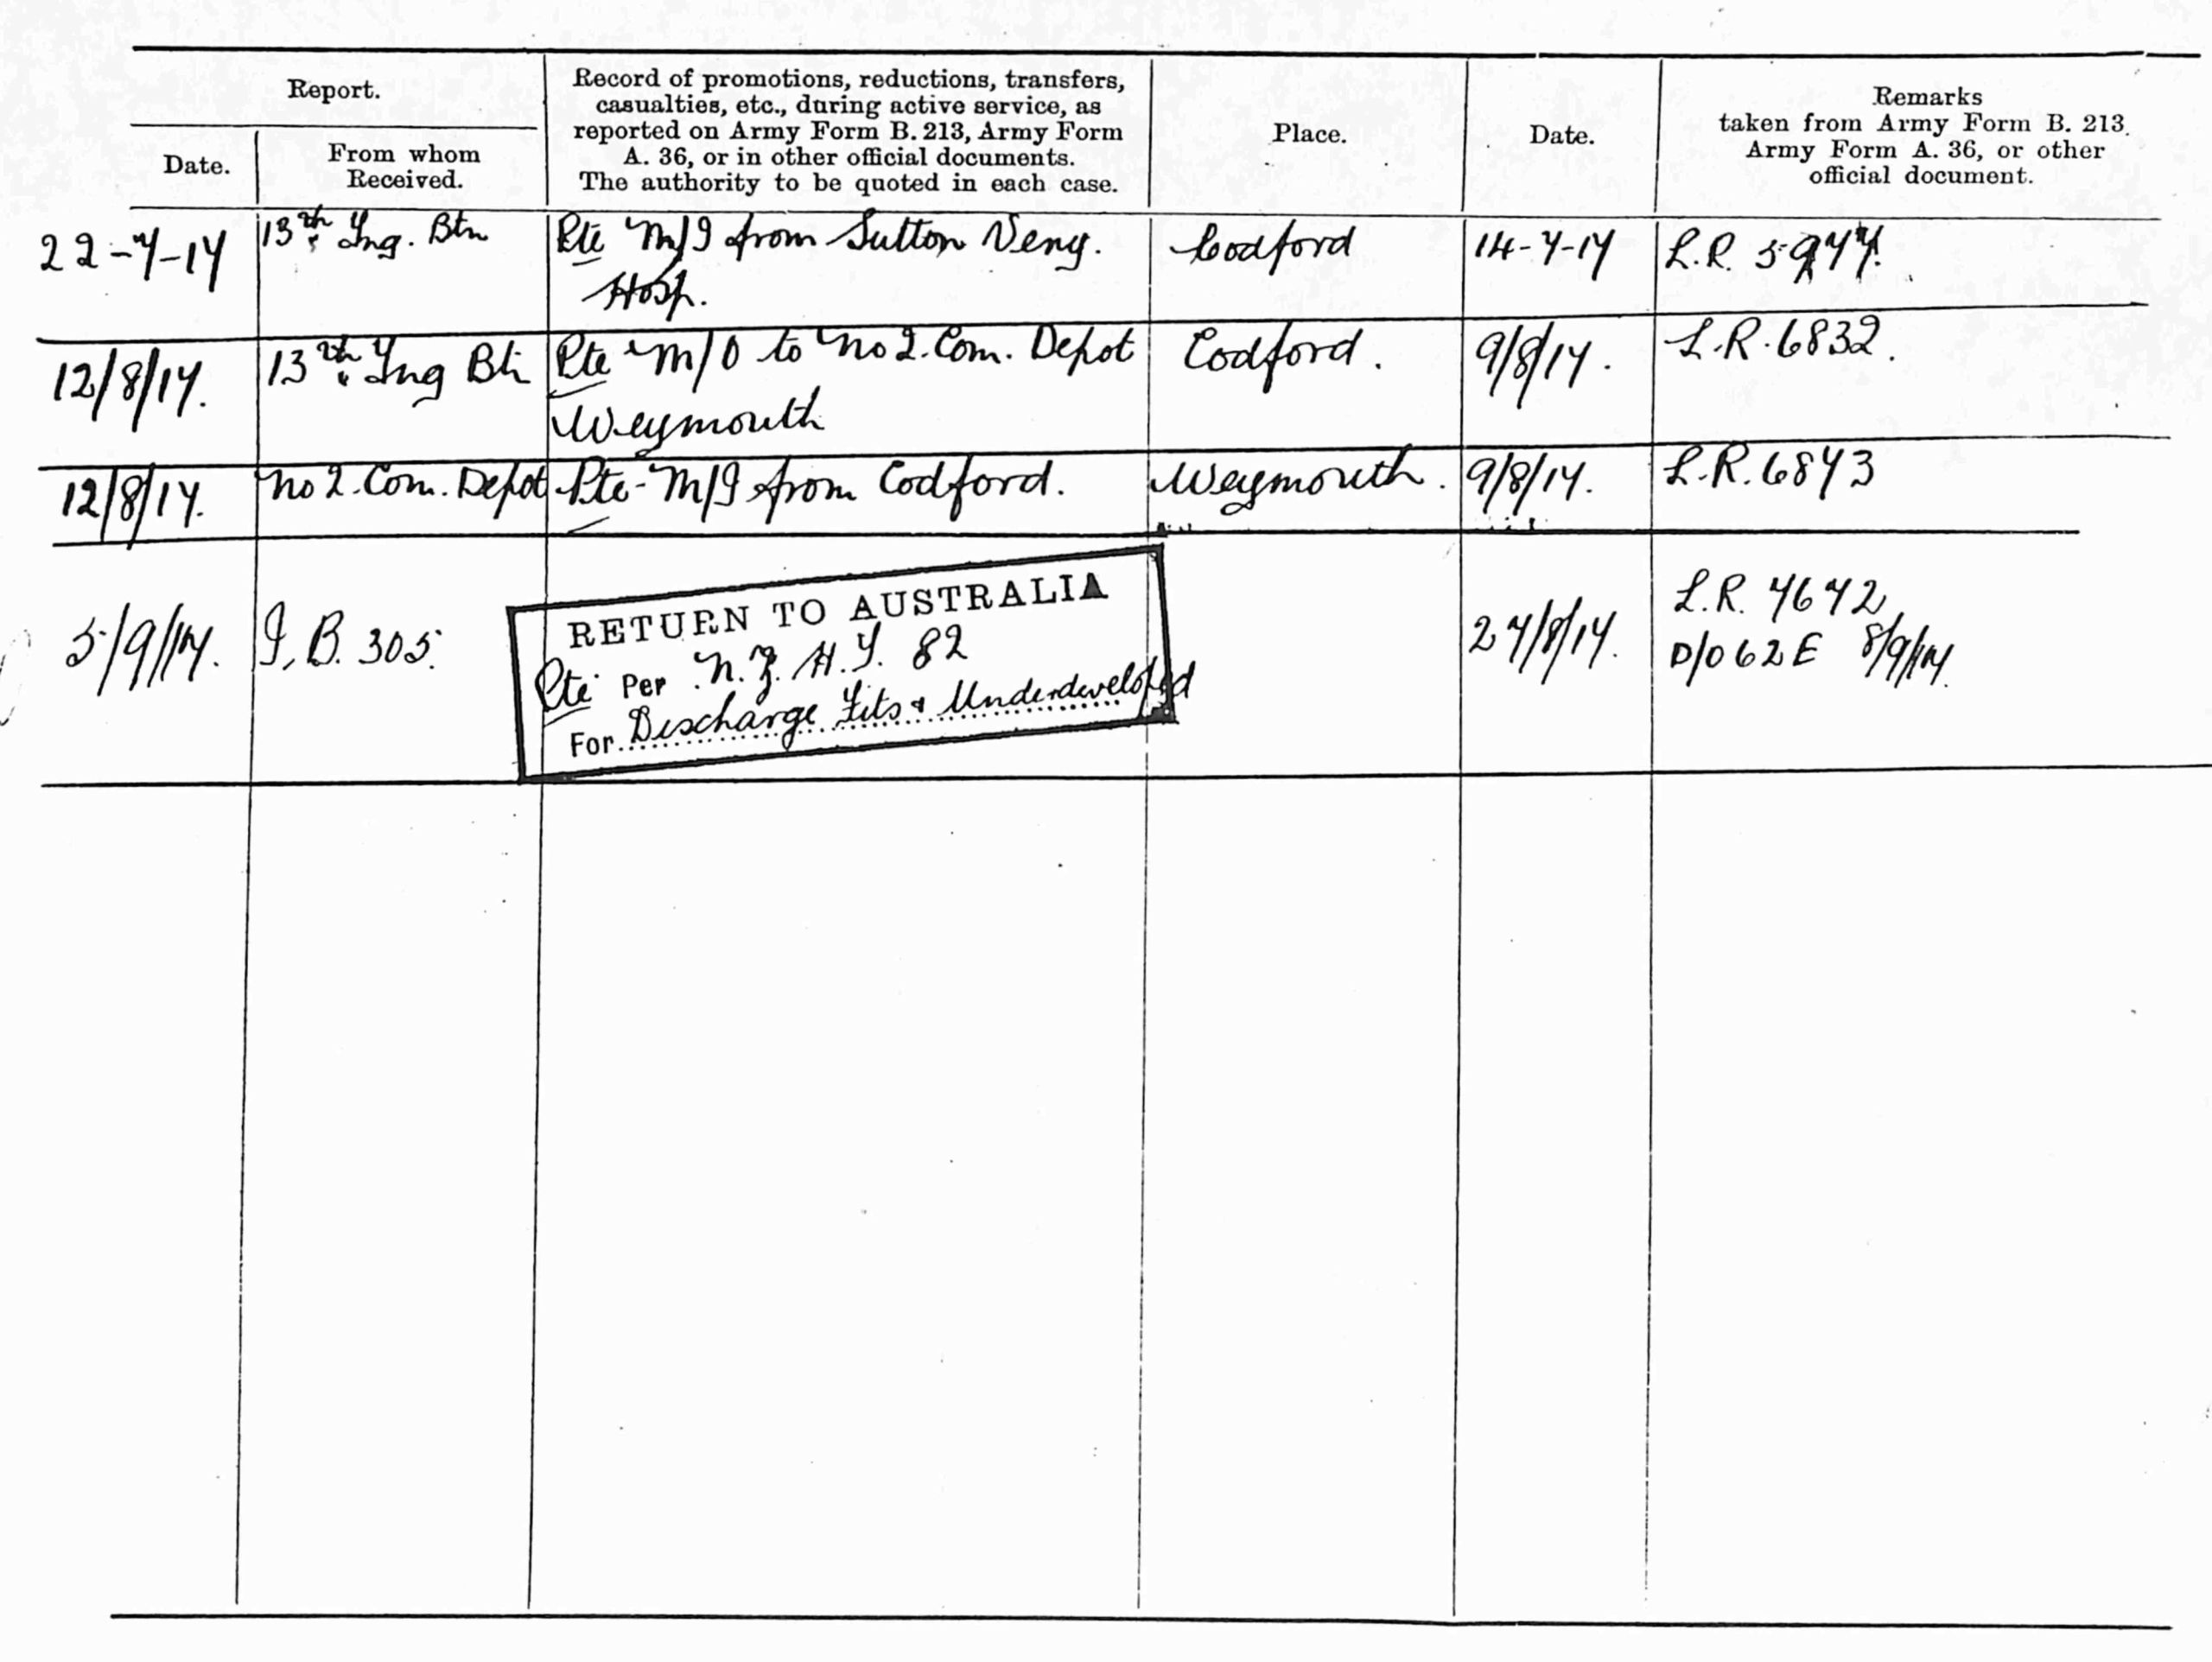 Report.
Date.
From whom
Received.
Record of promotions, reductions, transfers,
casualties, etc., during active service, as
reported on Army Form B. 213, Army Form
A. 36, or in other official documents.
The authority to be quoted in each case.
Place.
Date.
Remarks
taken from Army Form B. 213.
Army Form A. 36, or other
official document.
22-7-17 13th Trng. Btn Pte M/I from Sutton Veny. Codford 14-7-17 L.R. 5977.
Hosp.
12/8/17. 13th Trng Btn Pte M/O to No 2. Com. Depot Codford. 9/8/17. L.R. 6832.
Weymouth
12/8/17. No 2. Com. Depot Pte M/I from Codford. Weymouth. 9/8/17. L.R. 6873
5/9/17. I.B. 305. RETURN TO AUSTRALIA 27/8/17. L.R. 7672
Pte Per N.Z. H.T. 82 D/O 62E 8/9/17.
For Discharge Fits & Underdeveloped